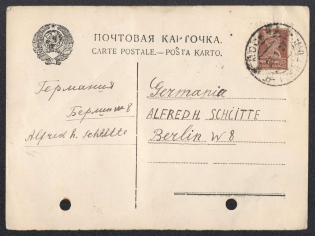 ПОЧТОВАЯ КАРТОЧКА.
CARTE POSTALE.—POŜTA KARTO.
Германия
Берлин W 8
Alfred H. Schütte
Germania
ALFRED H. SCHÜTTE
Berlin W 8.